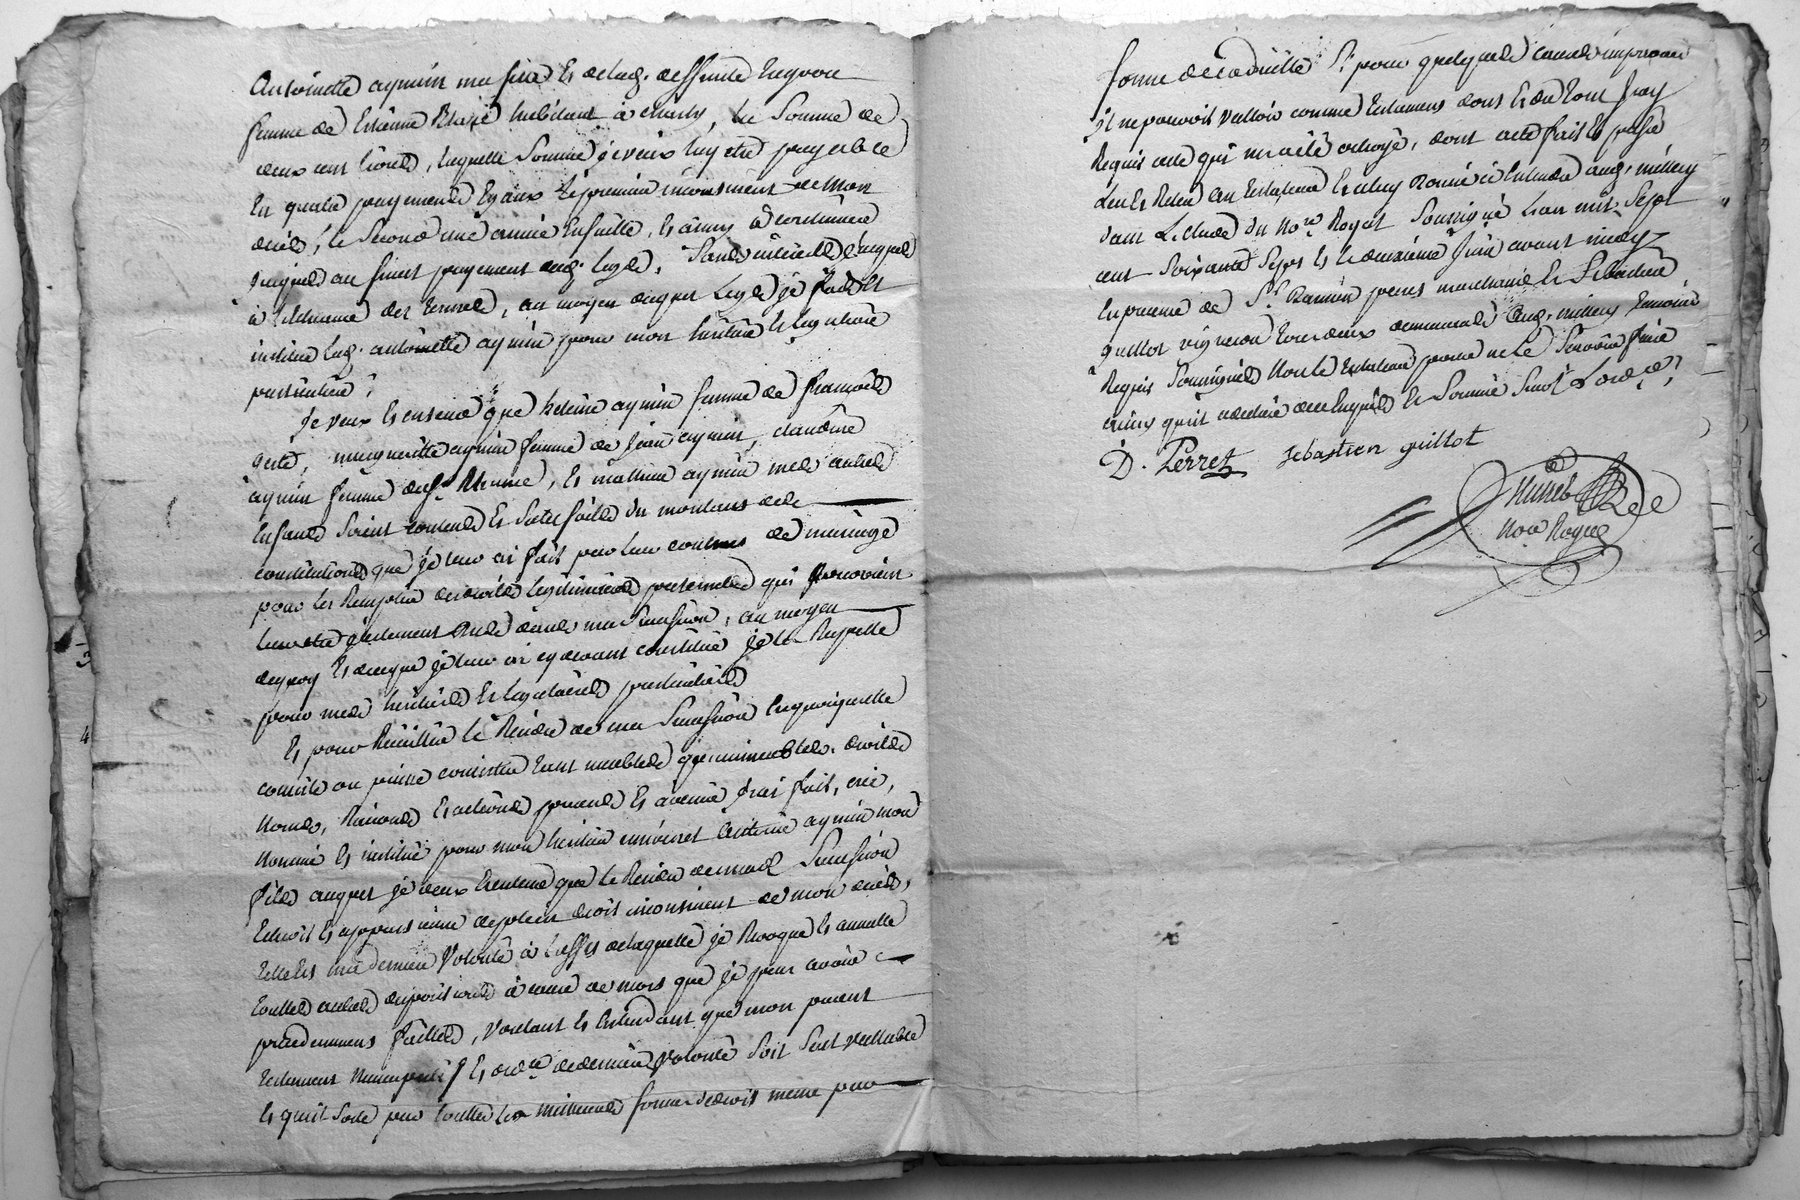 Antoinette aymin ma fille Et de lad. deffunte
femme de Estienne habitant à charly, la Somme de
deux cent livres, laquelle Somme je veux luy etre payable
En quatre payements Egaux le premier incontinent de Mon
decès, le Second une année Ensuitte, Et ainsy à continuer
jusques au final payement dud. legs, Sans interets jusques
à l'echeance des termes, au moyen duquel Legs je fais Et
institue lad. antoinette aymin pour mon heritiere Et legataire
particuliere ;
Je veux Et entend que helene aymin femme de françois
margueritte aymin femme de jean aymin, claudine
aymin femme de Et mathieu aymin mes autres
Enfants Soient contents Et Satisfaits du montant des
constitutions que je leur ai fait par leur contrats de mariage
pour les Remplir de droits legitimaires paternels qui pouvoient
leur etre dans ma Succession, au moyen
de quoy Et de ce que je leur ai cy devant constitué je les Rappelle
pour mes heritiers Et legataires particuliers
Et pour Recuillir le Residu de ma Succession En quoi quelle
consiste ou puisse consister tant meubles qu'immeubles, droits
Noms, Raisons Et actions presents Et avenir j'ai fait, créé,
Nommé Et institué pour mon heritier universel Antoine aymin mon
fils auquel je veux Et entend que le Residu de mad. Succession
Echoit Et appartienne de plein droit incontinent de mon decès,
telle Est ma derniere Volonté à l'effet de laquelle je Revoque Et annulle
touttes autres dispositions à cause de mort que je peux avoir
precedemment faittes, voulant Et Entendant que mon present
testament Et de derniere volonté Soit Seul vallable
Et quil Sorte par touttes les meilleures formes de droit meme par
forme de codicille Si pour quelques causes impreveues
il ne pouvoit valloir comme testament dont Et du tout j'ay
Requis acte qui m'a été octroyé, dont acte fait Et passé
leu Et Releu au testateur Et a luy donné à Entendre aud. millery
dans L'etude du No.re Royal Soussigné L'an mil Sept
cent Soixante Sept Et le deuxieme Juin avant midy
En presence de S.r perret marchand Et Sebastien
guillot vigneron tous deux demeurants aud. millery temoins
Requis Soussignés Non le testateur pour ne le Scavoir faire
ainsy quil a declaré de ce Enquis Et Sommé Suiv.t Lord.ce ;
D. Perret Sebastien guillot
No.re Royal